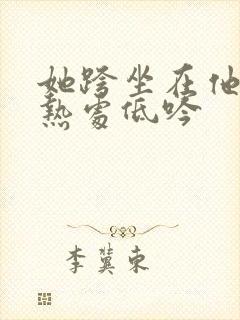 她跨坐在他
熱處低吟
李冀東